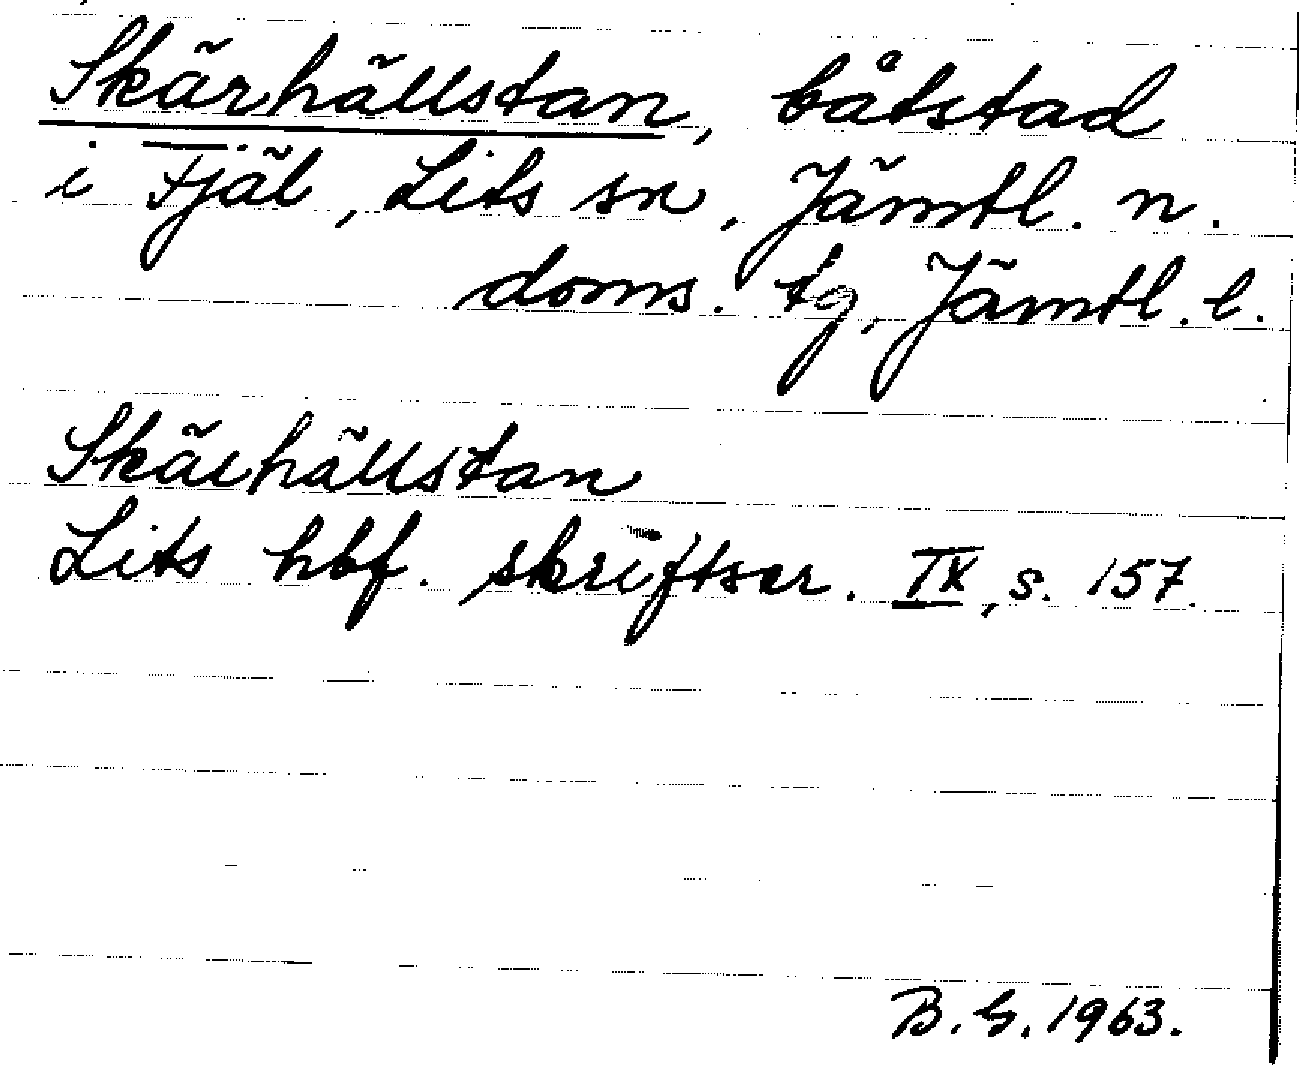 Skärhällstan, båtstad
i Fjäl, Lits sn, Jämtl. n.
doms. tg, Jämtl. l.
Skärhällstan
Lits hbf. skriftser. IX, s. 157.
B. G. 1963.